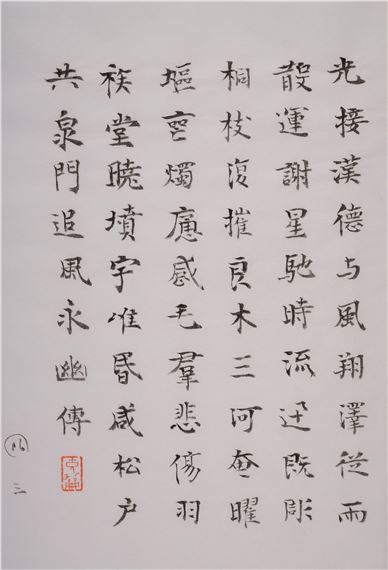 光接漢德与風翔澤從雨
散運謝星馳時流迅既彫
桐枝復摧良木三河奄曜
塸喪燭痛感毛羣悲傷羽
族堂曉墳宇唯昏咸松戶
共泉門追風永幽傳
三